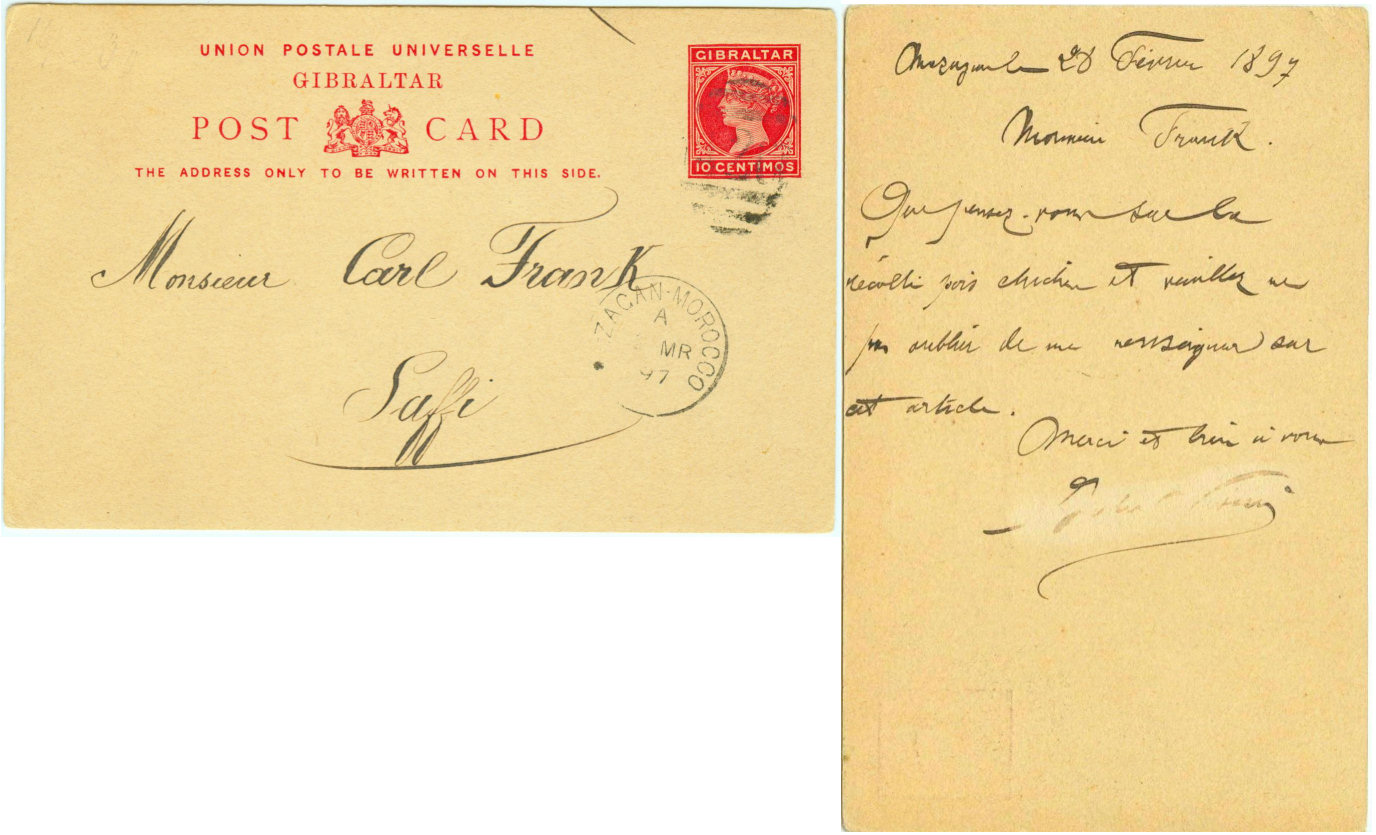 UNION POSTALE UNIVERSELLE
GIBRALTAR
POST CARD
THE ADDRESS ONLY TO BE WRITTEN ON THIS SIDE.
GIBRALTAR
10 CENTIMOS
Monsieur Carl Frank
Saffi
ZAGAN-MOROCCO
A
MR
97
Mazagan le 28 Février 1897
Monsieur Frank.
Que pensez-vous sur la
récolte pois chiches et veuillez ne
pas oublier de me renseigner sur
cet article.
Merci et bien à vous